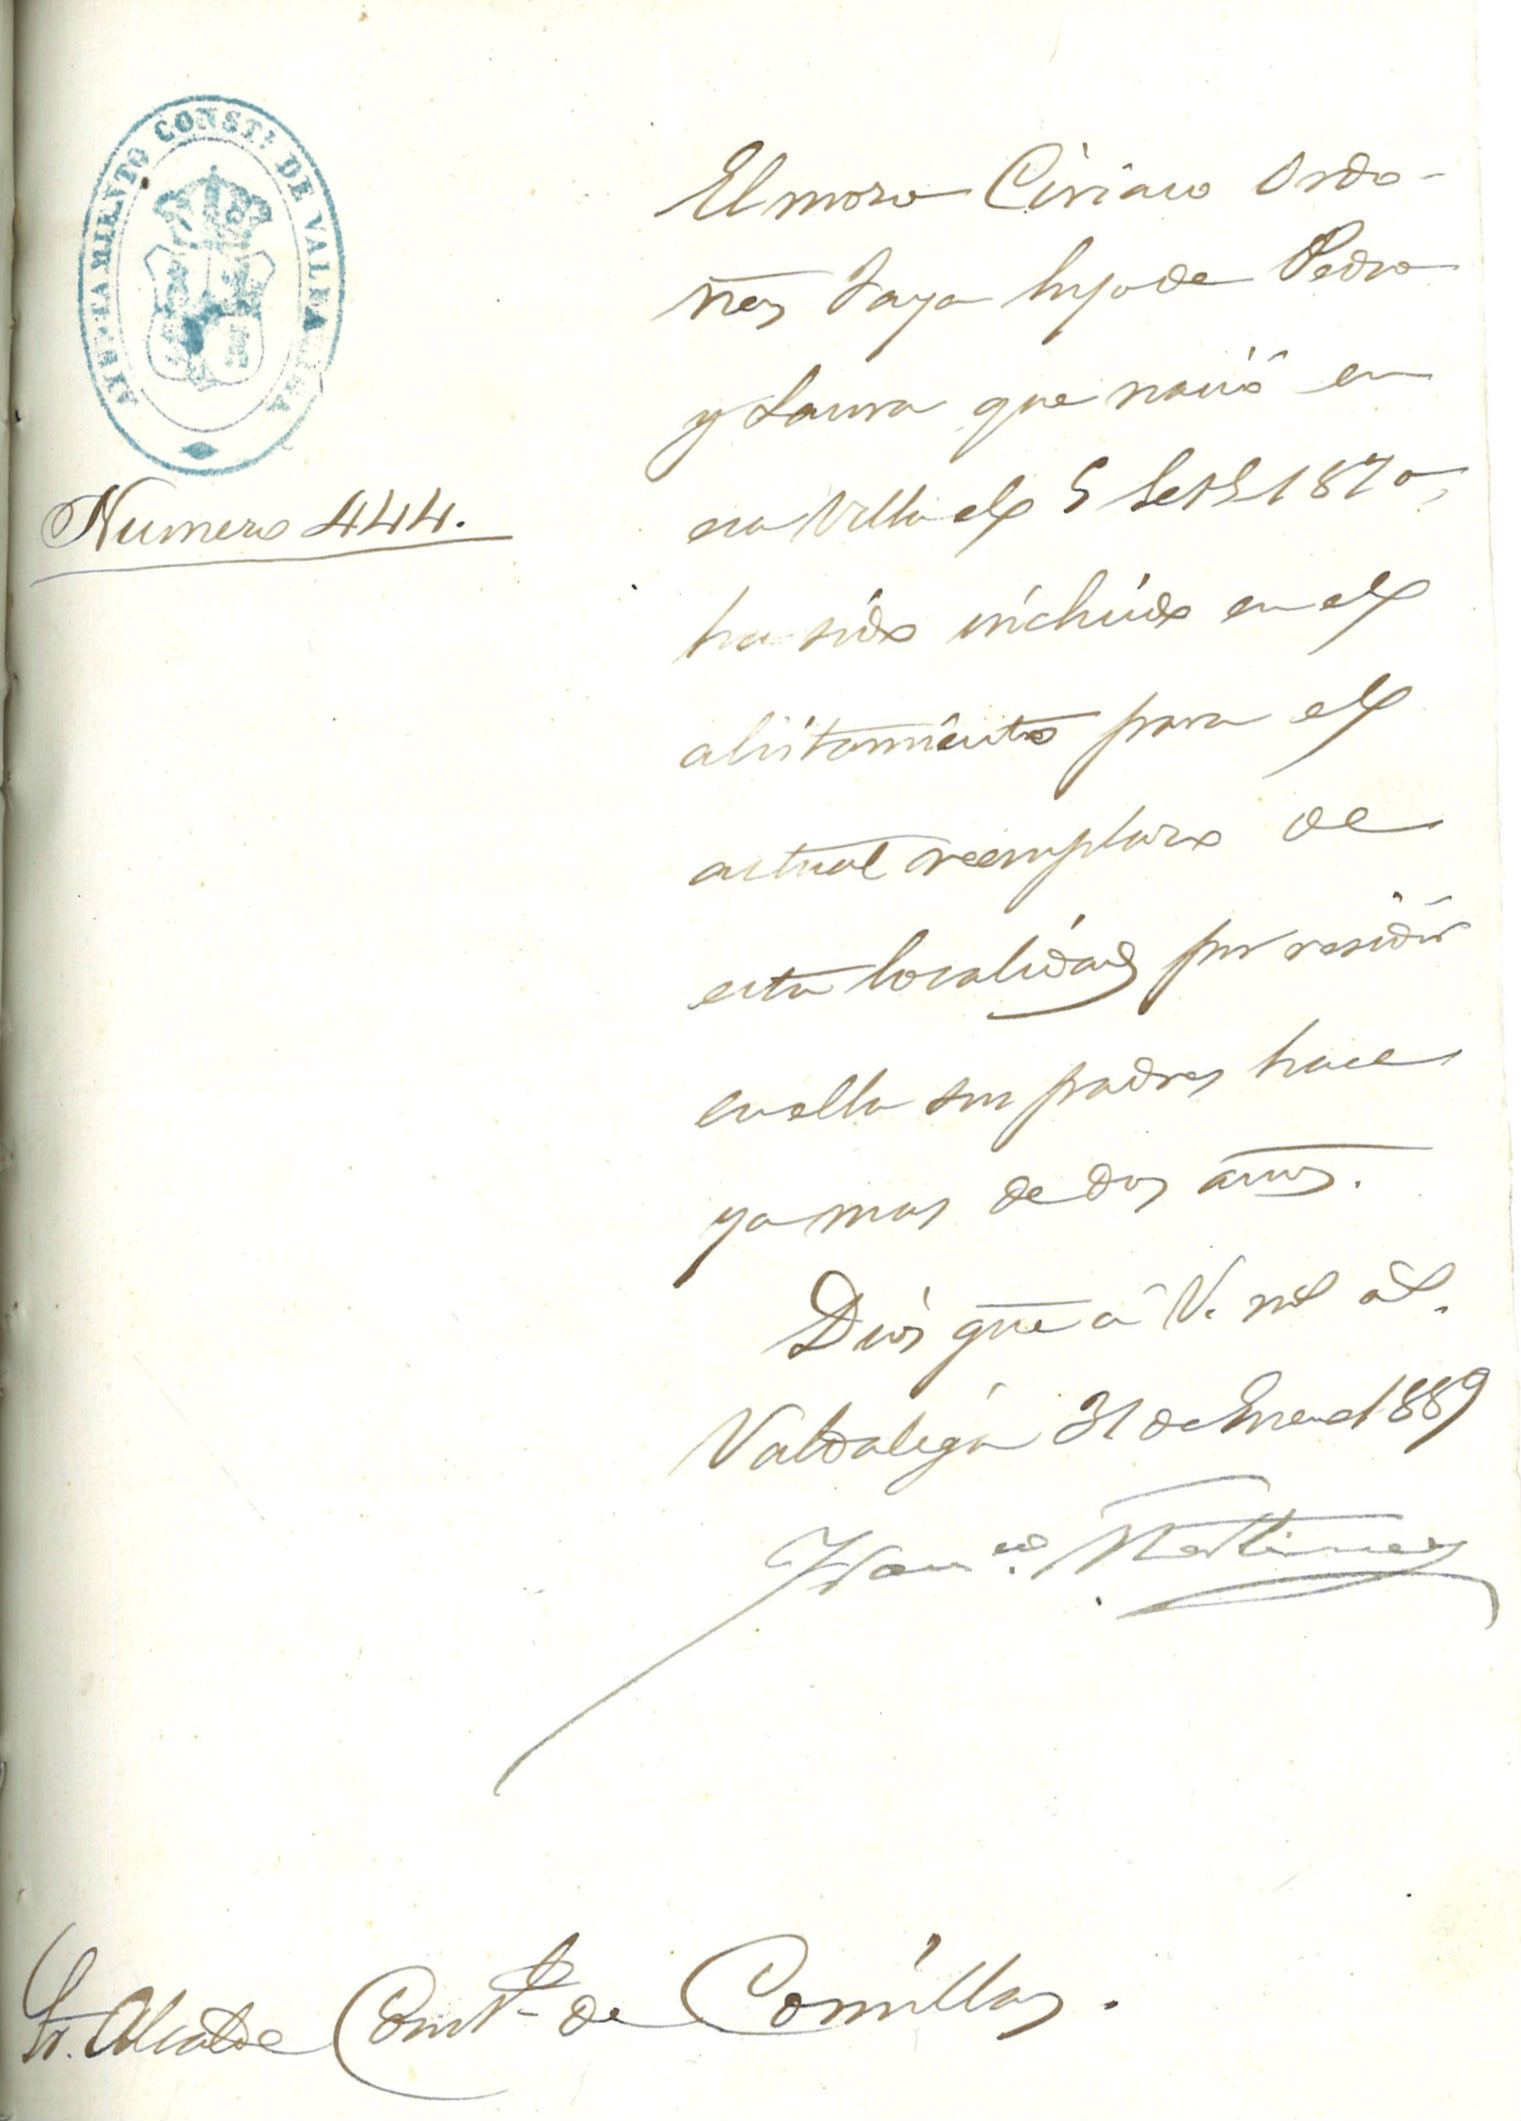 AYUNTAMIENTO CONST.L DE VALDALIGA
Numero 444.
El mozo Ciriaco Ordo-
ñez Saya hijo de Pedro
y Laura que nació en
esa Villa el 5 Setbe 1870,
ha sido incluido en el
alistamiento para el
actual reemplazo de
esta localidad por residir
en ella sus padres hace
ya mas de dos años.
Dios gue á V. ml as.
Valdaliga 31 de Enero 1889
Franco. Martinez
Sr. Alcalde Constl de Comillas.